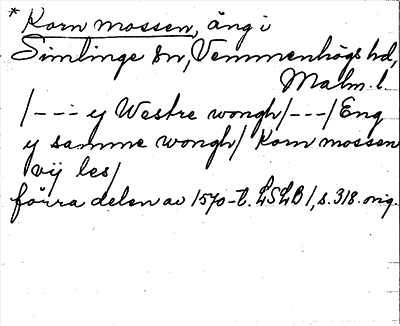 * Korn mossen, äng i
Simlinge sn, Vemmenhögs hd,
Malm. l.
/--- y Westre wongh/---/Eng
y samme wongh/ Korn mossen
vij les/
förra delen av 1570-t. LSLB 1, s. 318. orig.